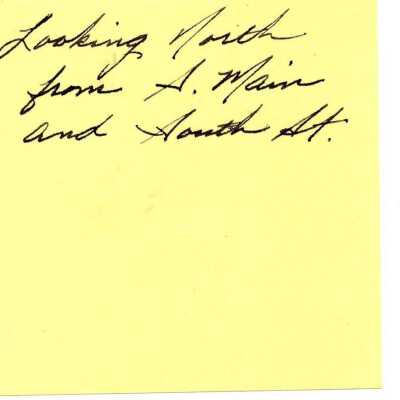 Looking North
from S. Main
and South St.